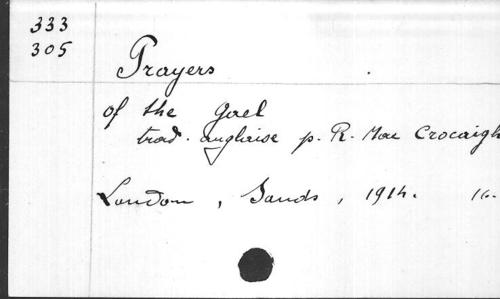 333
305
Prayers
of the Gael
trad. anglaise p. R. Mac Crocaigh
London, Sands, 1914. 16-